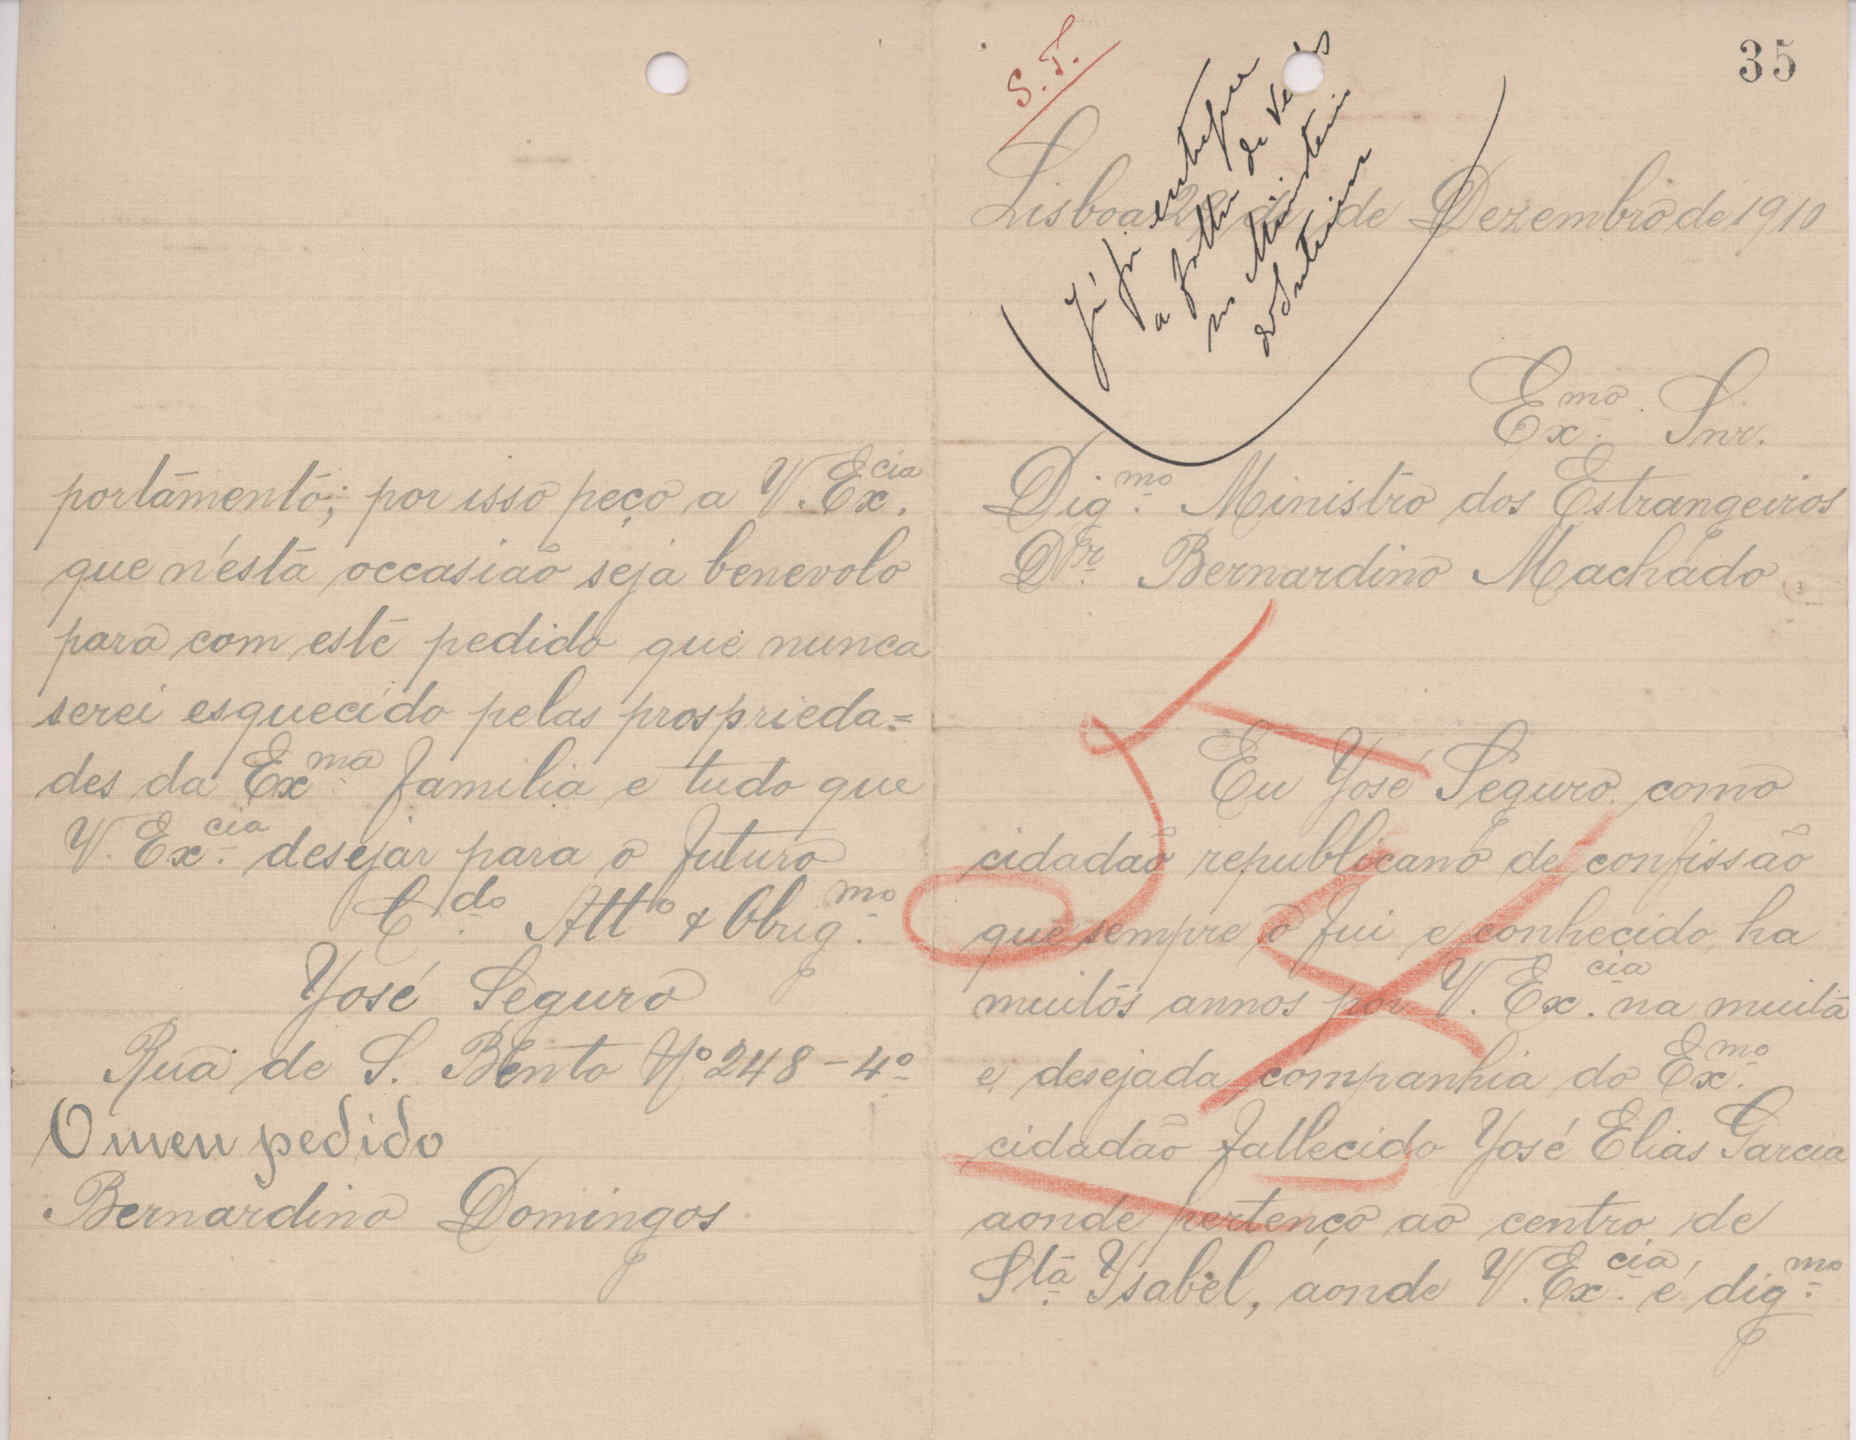 35
S. T.
Já foi entregue
a folha de
no Ministerio
do Interior
Lisboa de Dezembro de 1910
Ex.mo Snr.
Dig.mo Ministro dos Estrangeiros
Dr. Bernardino Machado
Eu José Seguro como
cidadão republicano de confissão
que sempre o fui e conhecido ha
muitos annos por V. Ex.cia na muita
e desejada companhia do Ex.mo
cidadão fallecido José Elias Garcia
aonde pertenço ao centro de
Sta. Ysabel, aonde V. Ex.cia é dig.mo
portamento; por isso peço a V. Ex.cia
que n'ésta occasião seja benevolo
para com este pedido que nunca
serei esquecido pelas prosprieda=
des da Ex.ma familia e tudo que
V. Ex.cia desejar para o futuro
C.do Att.o & Obrig.mo
José Seguro
Rua de S. Bento Nº 248-4º
O meu pedido
Bernardino Domingos